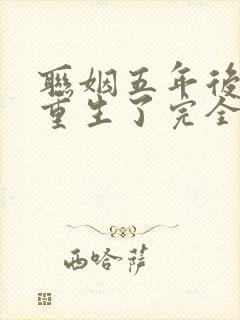 聯姻五年後
重生了完全
西哈萨